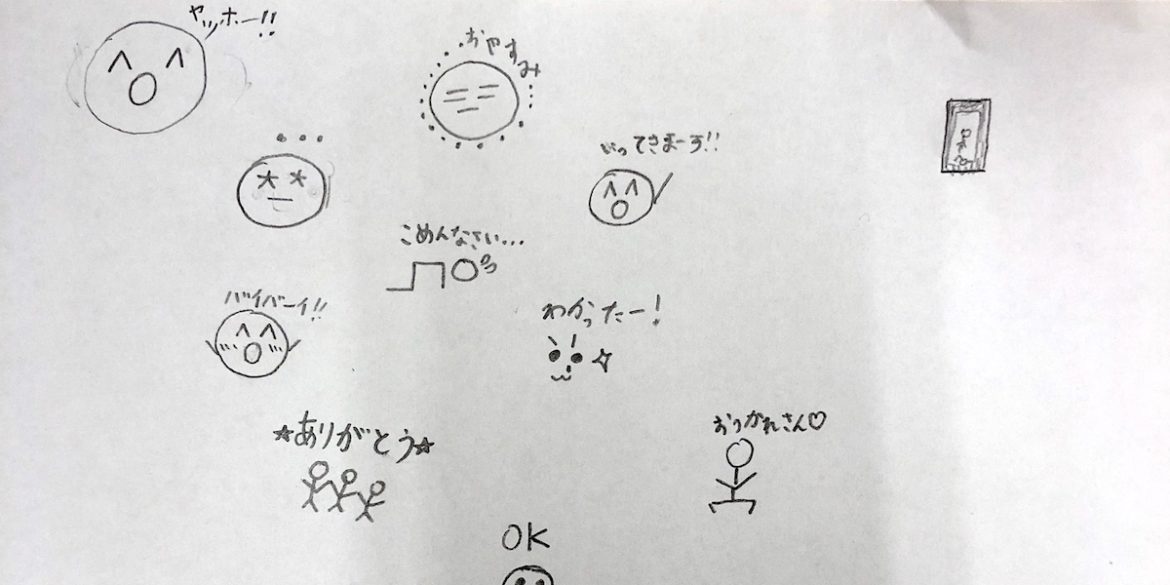 ヤッホー!!
おやすみ
...
いってきまーす!!
ごめんなさい...
バイバーイ!!
わかったー!
☆ありがとう☆
おつかれさん♡
OK